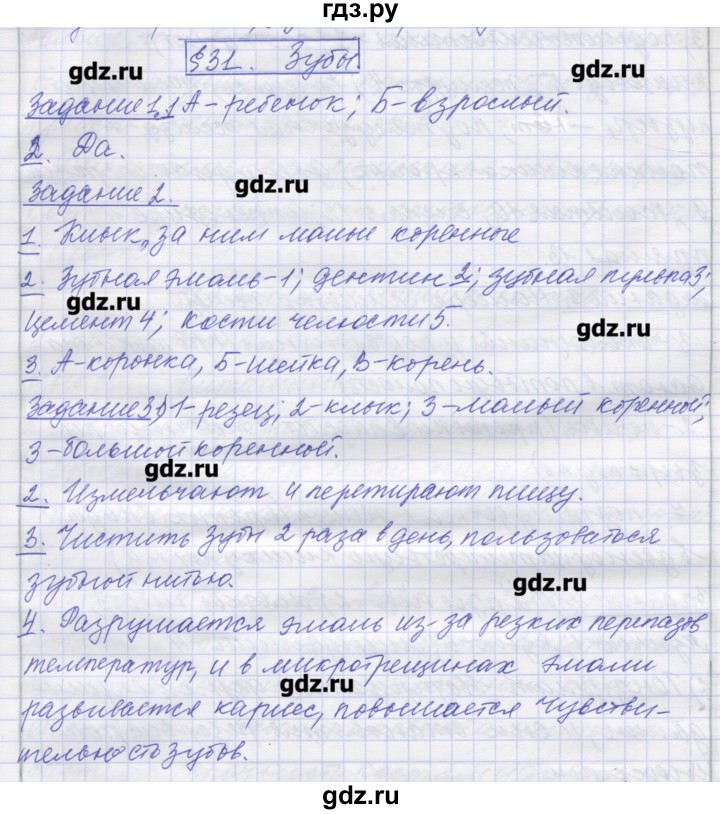 гдз.ру
§31. Зубы.
gdz.ru gdz.ru
Задание 1,1 А - ребенок; Б - взрослый.
2. Да.
gdz.ru
Задание 2.
1. Клык, за ним малые коренные
2. Зубная эмаль - 1; дентин 2; зубная пульпа 3;
gdz.ru
цемент 4; кости челюсти 5.
gdz.ru
3. А - коронка, Б - шейка, В - корень.
Задание 3,1 1 - резец; 2 - клык; 3 - малый коренной;
3 - большой коренной.
gdz.ru
2. Измельчают и перетирают пищу.
3. Чистить зубы 2 раза в день, пользоваться
зубной нитью.
gdz.ru
4. Разрушается эмаль из-за резких перепадов
температур, и в микротрещинах эмали
gdz.ru
развивается кариес, повышается чувстви-
тельность зубов.
gdz.ru